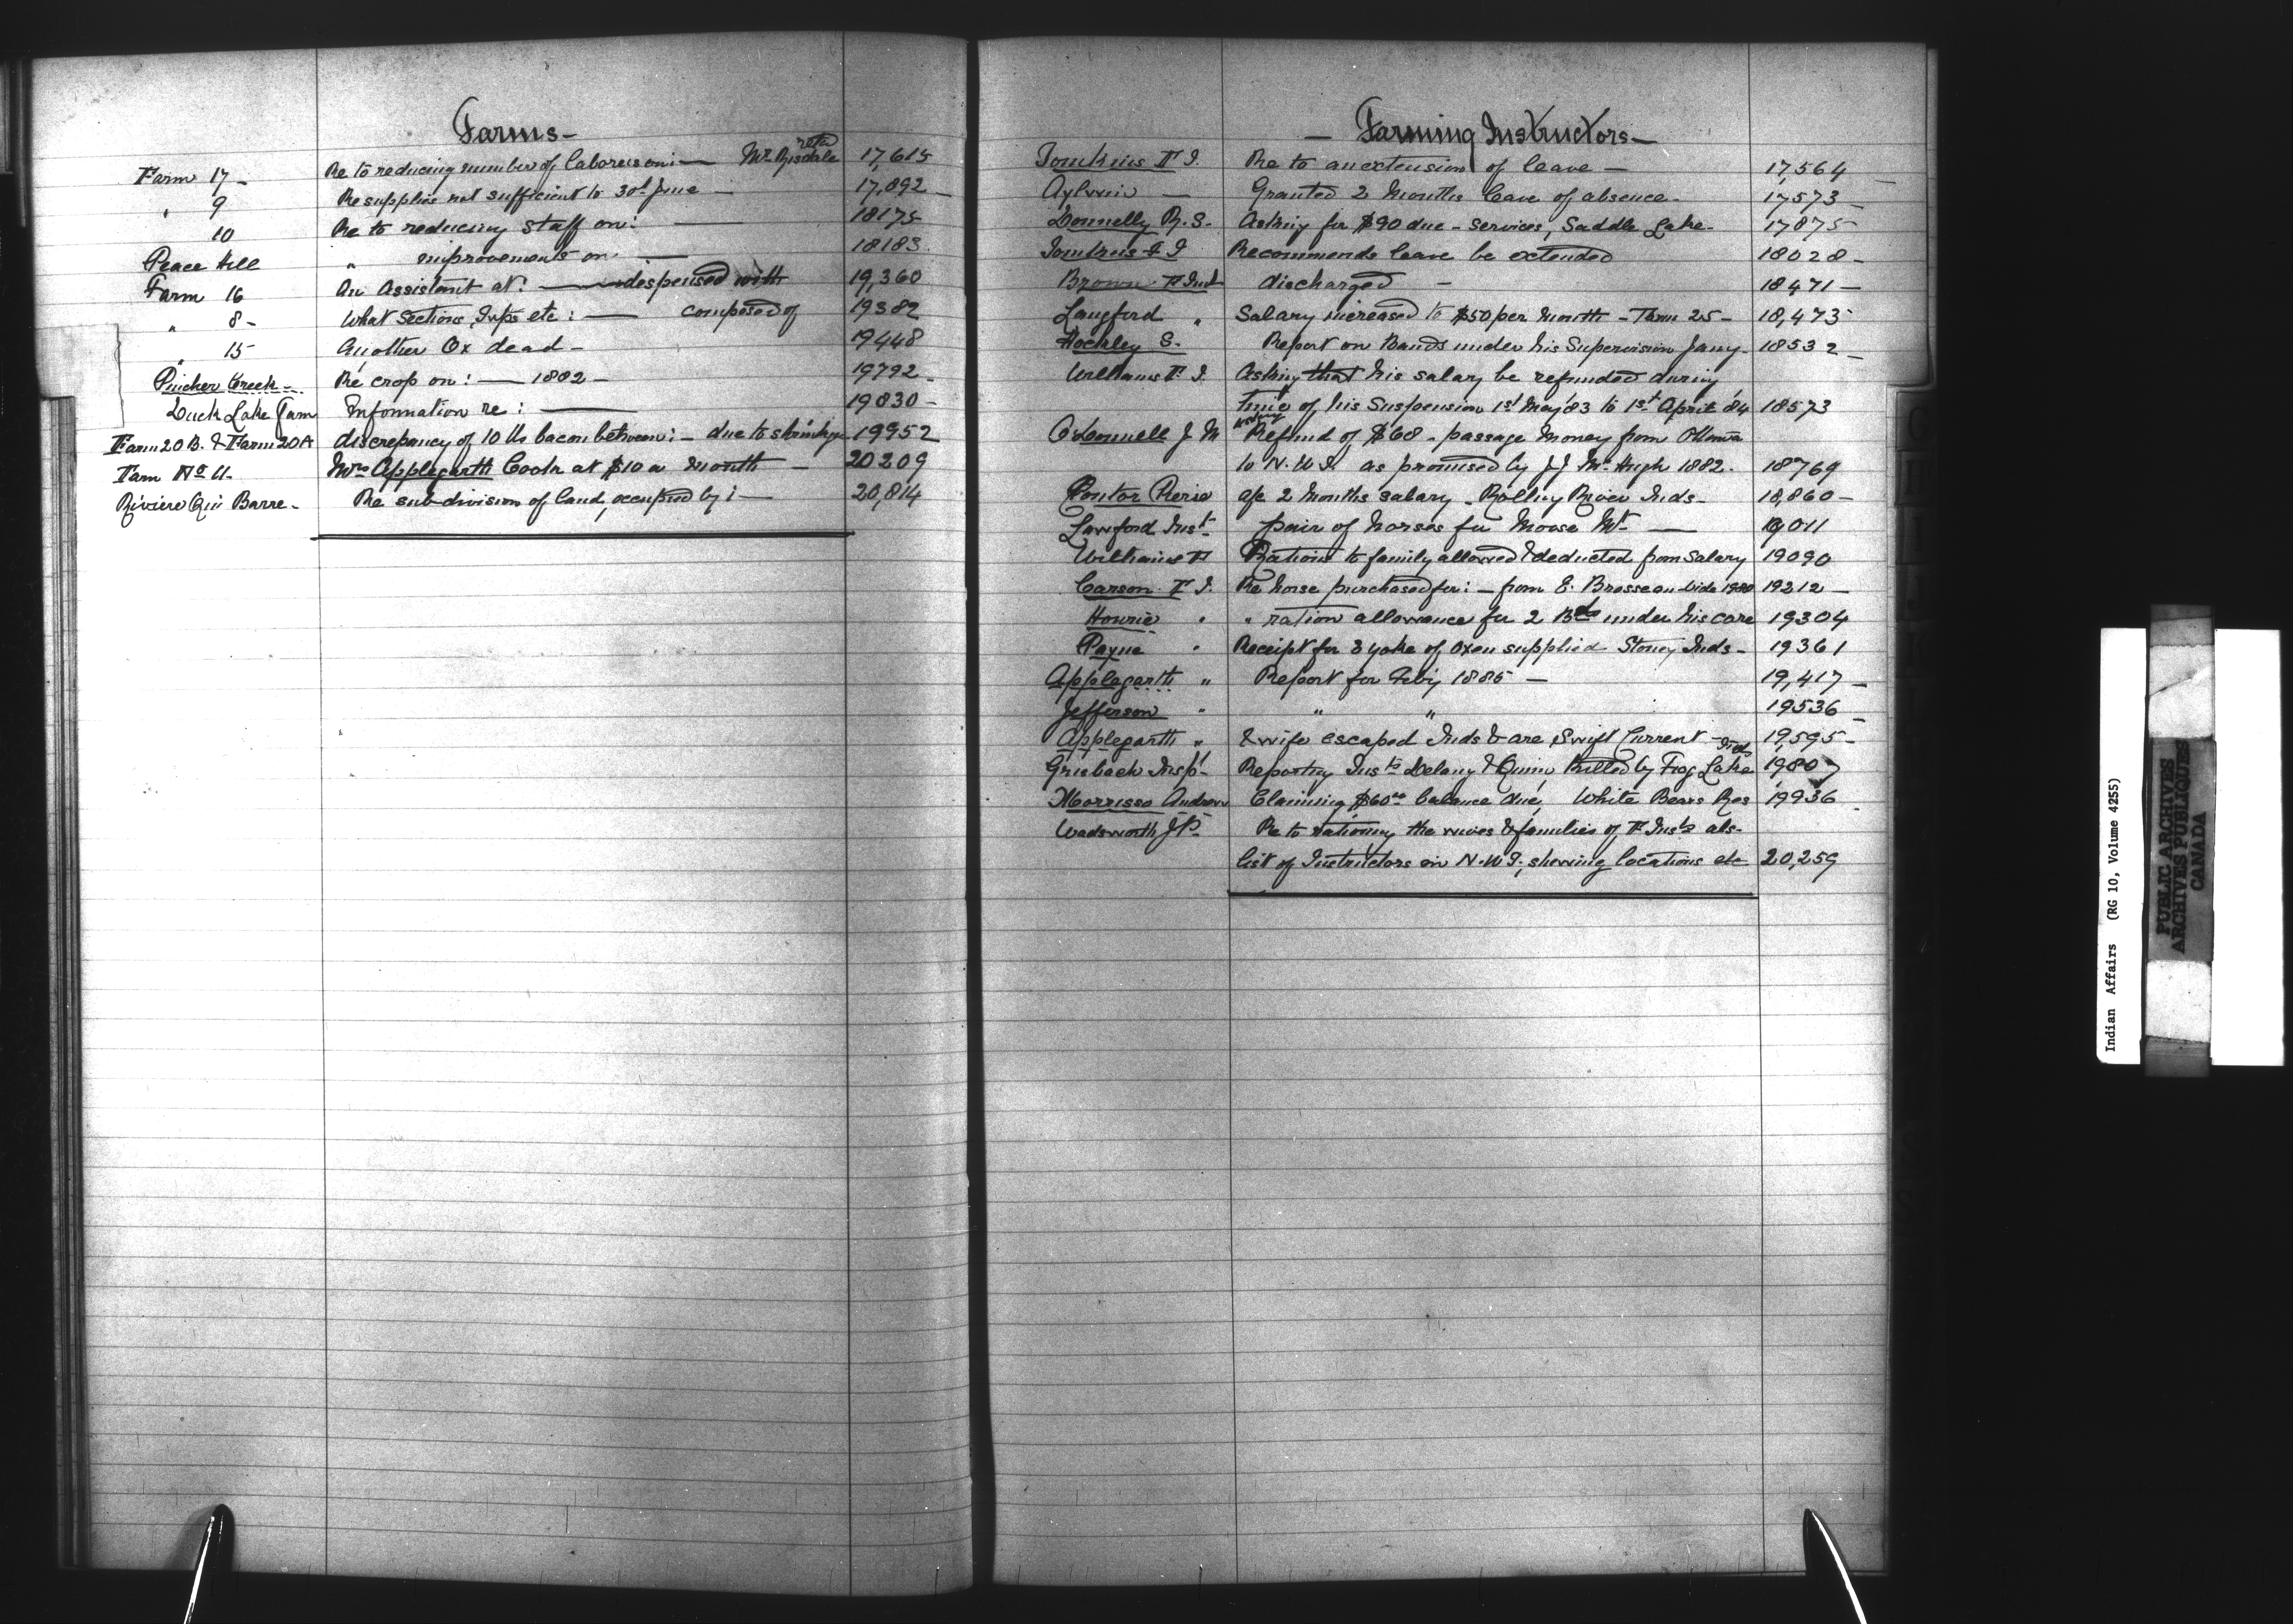 Farms-
Farm 17 - Re to reducing number of laborers on: — Mr. Rusdale 17,615
" 9 Re supplies not sufficient to 30th June — 17,892
10 Re to reducing staff on: — 18175
Peace Hill " improvements on: — 18183
Farm 16 An Assistant at: — despensed with 19,360
" 8- What Sections, Twps etc: — composed of 19382
" 15 Another Ox dead - 19448
Pincher Creek - Re crop on: — 1882 - 19792
Duck Lake Farm Information re: — 19830 -
Farm 20 B. & Farm 20A discrepancy of 10 lbs bacon between: - due to shrinkage 19952
Farm No 11. Mrs Applegarth Cook at $10 a month - 20209
Riviere Qui Barre - Re sub-division of land, occupied by: — 20,814
— Farming Instructors —
Tomkins F I. Re to an extension of leave — 17,564
Aylwin — Granted 2 Months leave of absence - 17573
Donnelly R. S. Asking for $90 due - services, Saddle Lake - 17875
Tomkins F I Recommends leave be extended 18028 -
Brown F Inst discharged - 18471 —
Langford " Salary increased to $50 per Month - Farm 25 - 18,473
Hockley S. Report on Bands under his Supervision Jany - 18532
Williams F. I. Asking that his salary be refunded during
time of his Suspension 1st May '83 to 1st April '84 18573
O'Donnell J M Refund of $68 - passage Money from Ottawa
to N.W.T. as promised by J J McHugh 1882. 18769
Pontor Pierre a/c 2 Months salary - Rolling River Inds - 18,860 -
Lawford Inst - pair of horses for Moose Mt — 19011
Williams F Rations to family allowed & deducted from salary 19090
Carson F I. Re horse purchased for: - from E. Brosseau - vide 1980 19212 -
Hourie " " ration allowance for 2 Bds under his care 19304
Payne " Receipt for 3 yoke of Oxen supplied Stoney Inds - 19361
Applegarth " Report for Feby 1885 — 19,417 -
Jefferson " " " 19536 -
Applegarth " & wife escaped Inds & are Swift Current - 19,595 -
Griesbach Insp - Reporting Insts Delany & Quinn Killed by Frog Lake Inds 19807
Morrisso Andrew Claiming $60.00 balance due, White Bears Res 19936
Wadsworth J P. Re to rationing the wives & families of F Insts als.
list of Instructors in N.W.T., showing locations etc 20,259
Indian Affairs (RG 10, Volume 4255)
PUBLIC ARCHIVES
ARCHIVES PUBLIQUES
CANADA